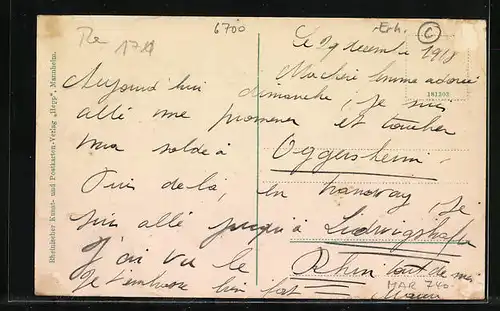 6700
Erh.
C
1711
Le 29 decembre 1918
Ma chère femme adorée
181303
Aujourd'hui dimanche, je suis
allé me promener et toucher
ma solde à Oggersheim.
Puis de là, en tramway, je
suis allé jusqu'à Ludwigshafen
J'ai vu le Rhin tout de
Je t'embrasse bien fort
MAR 740
Rheinischer Kunst- und Postkarten-Verlag „Hepp", Mannheim.